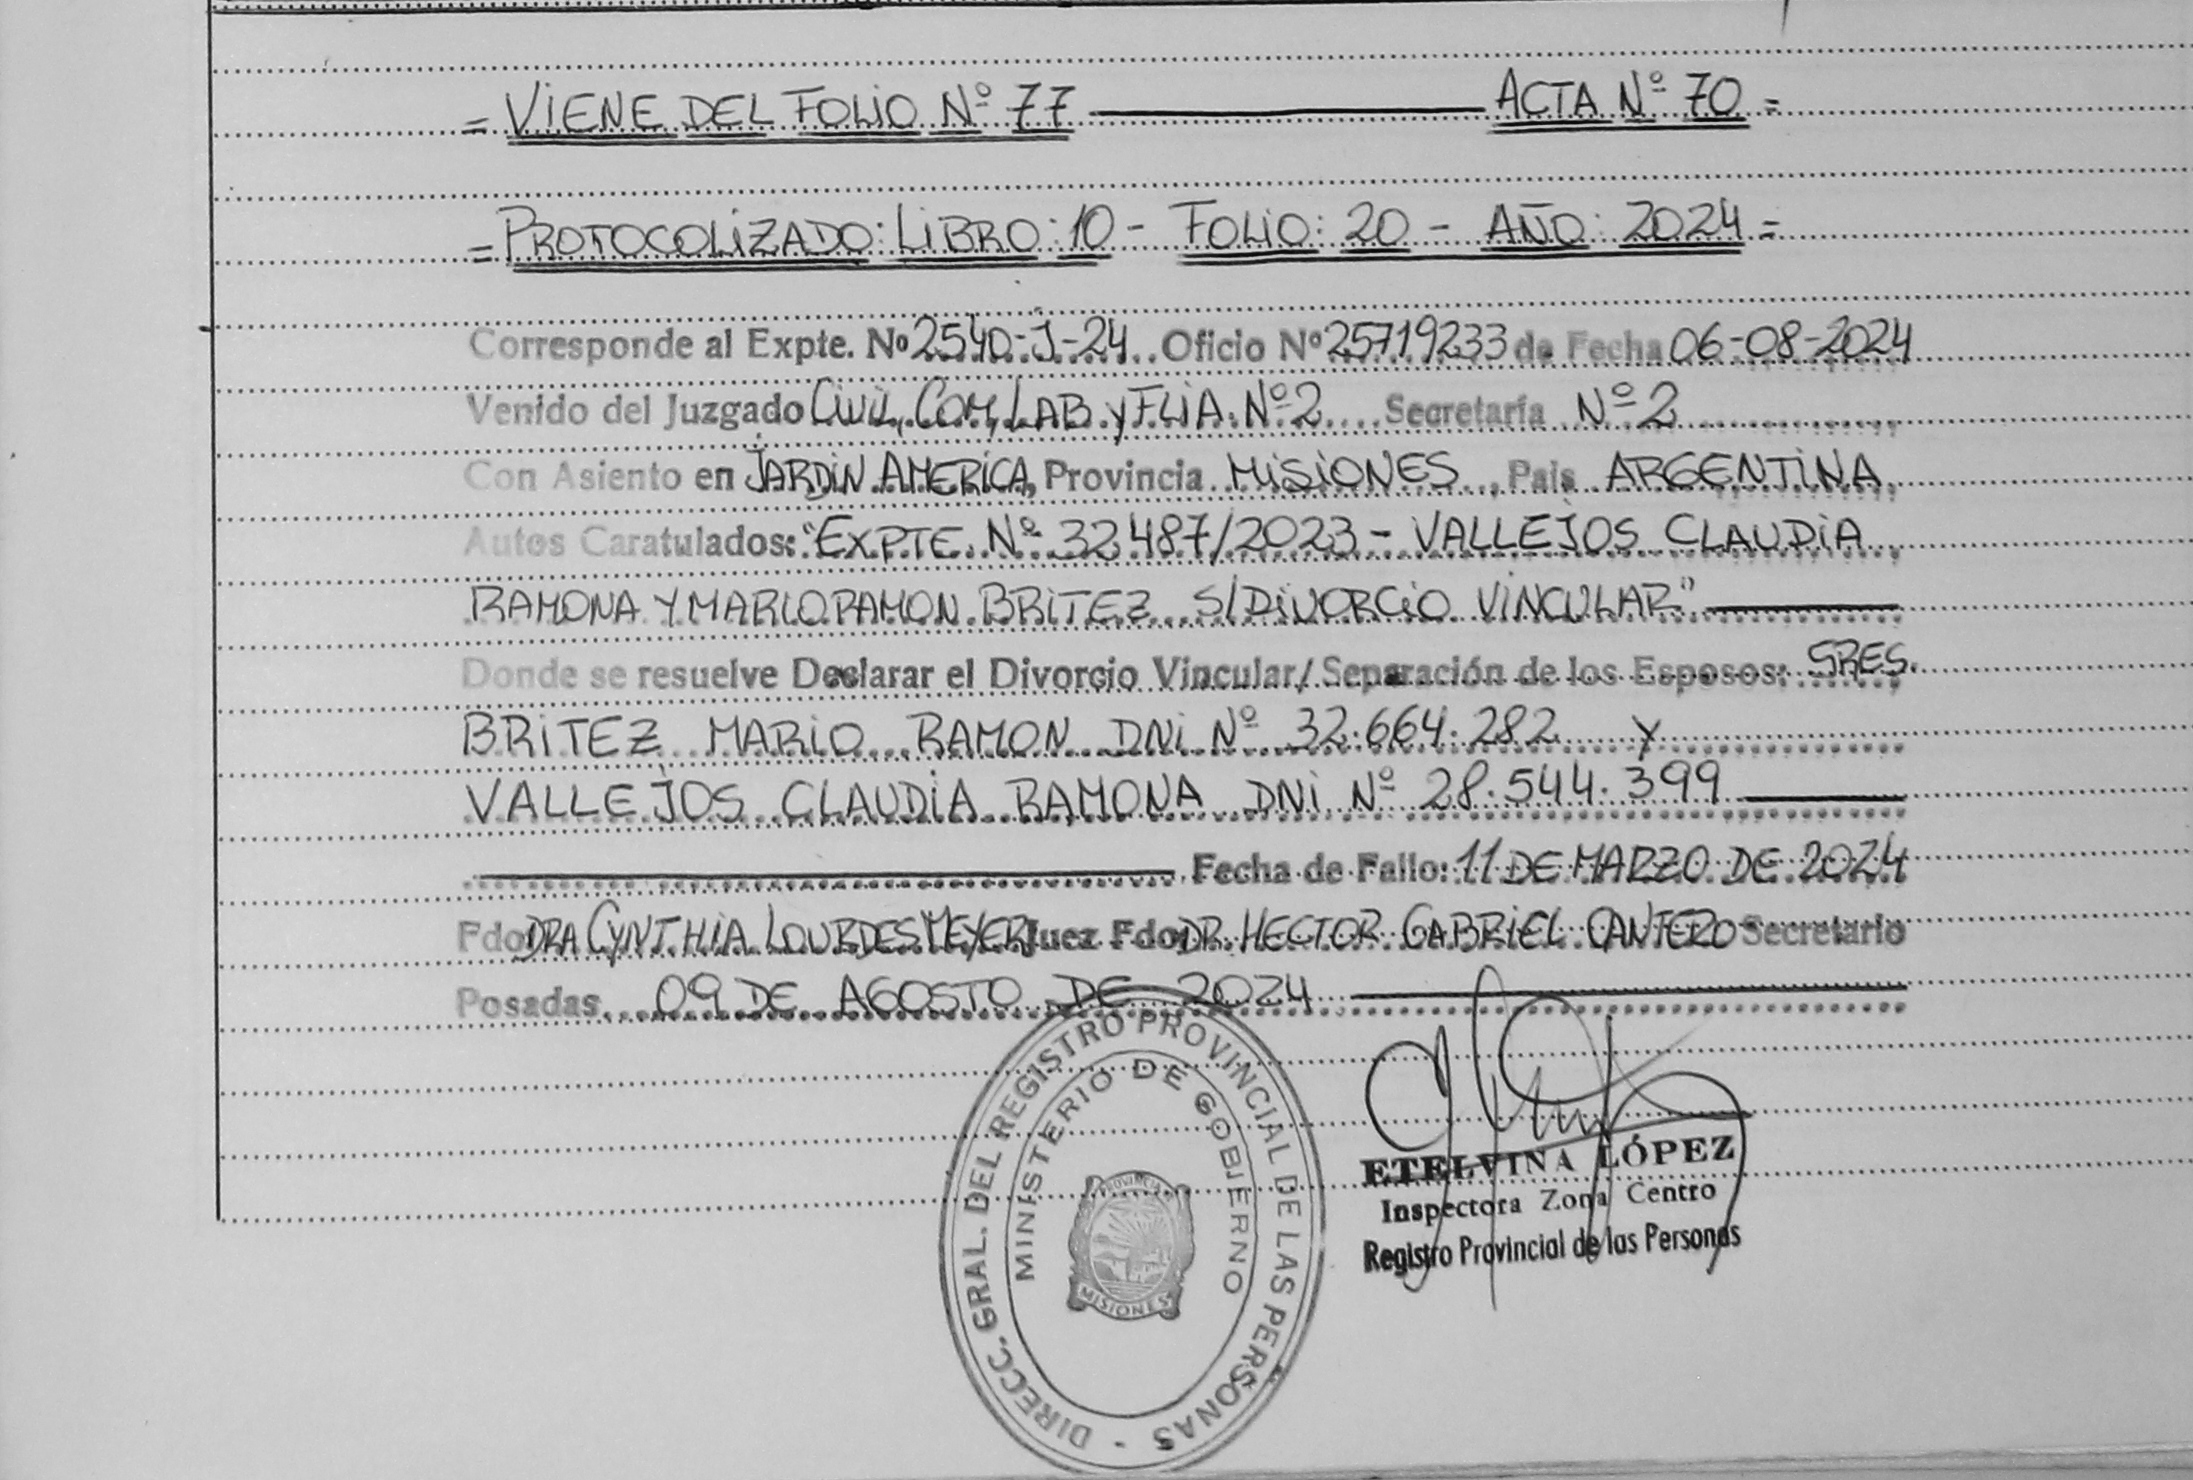 = VIENE DEL FOLIO Nº 77 ACTA Nº 70 =
= PROTOCOLIZADO: LIBRO: 10 - FOLIO: 20 - AÑO: 2024 =
Corresponde al Expte. Nº 2540-J-24 Oficio Nº 25719233 de Fecha 06-08-2024
Venido del Juzgado CIVIL, COM, LAB y FLIA. Nº 2 Secretaría Nº 2
Con Asiento en JARDIN AMERICA, Provincia MISIONES, País ARGENTINA
Autos Caratulados: "EXPTE. Nº 32487/2023 - VALLEJOS CLAUDIA
RAMONA Y MARIO RAMON BRITEZ S/DIVORCIO VINCULAR"
Donde se resuelve Declarar el Divorcio Vincular/ Separación de los Esposos: SRES.
BRITEZ MARIO RAMON DNI Nº 32.664.282 y
VALLEJOS CLAUDIA RAMONA DNI Nº 28.544.399
Fecha de Fallo: 11 DE MARZO DE 2024
Fdo DRA CYNTHIA LOURDES MEYER Juez Fdo DR. HECTOR GABRIEL CANTERO Secretario
Posadas 09 DE AGOSTO DE 2024
DIRECC. GRAL. DEL REGISTRO PROVINCIAL DE LAS PERSONAS -
MINISTERIO DE GOBIERNO
PROVINCIA
MISIONES
ETELVINA LÓPEZ
Inspectora Zona Centro
Registro Provincial de las Personas